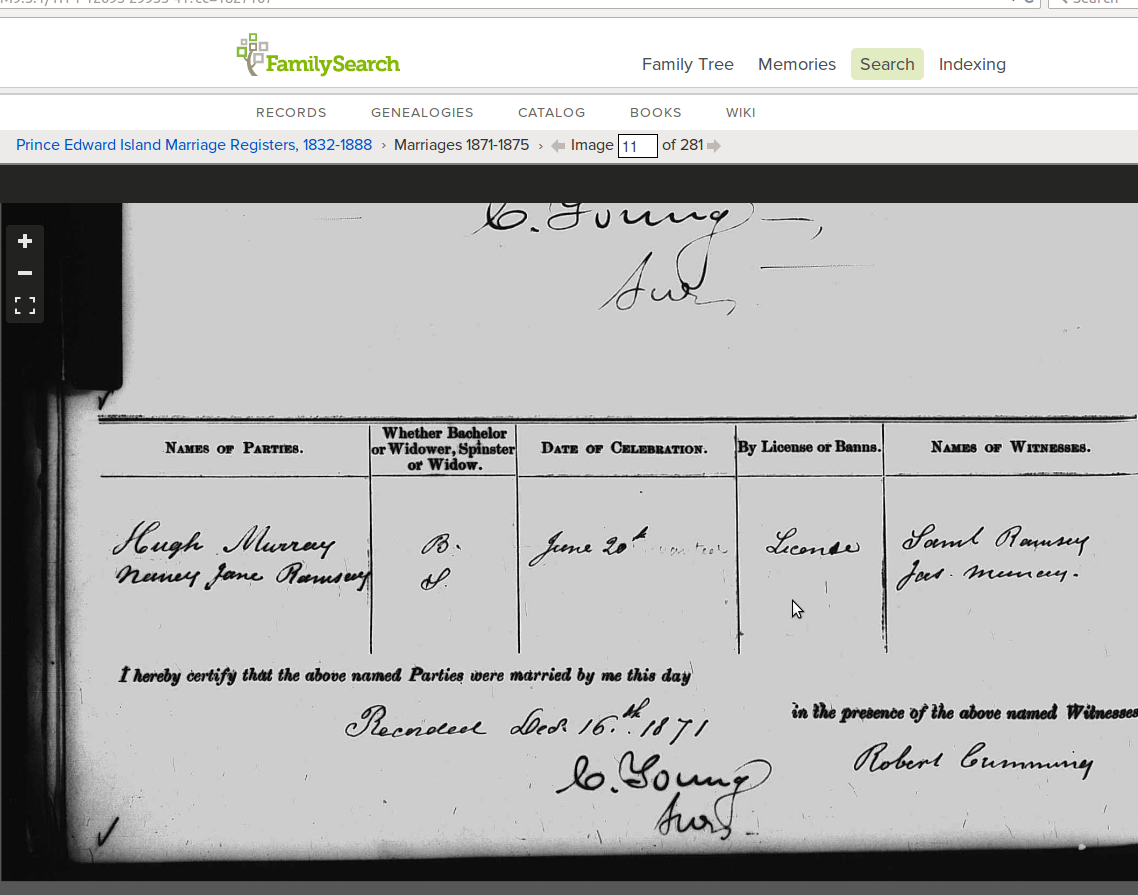 FamilySearch
Family Tree Memories Search Indexing
RECORDS GENEALOGIES CATALOG BOOKS WIKI
Prince Edward Island Marriage Registers, 1832-1888 › Marriages 1871-1875 › Image 11 of 281
C. Young
NAMES OF PARTIES. Whether Bachelor or Widower, Spinster or Widow. DATE OF CELEBRATION. By License or Banns. NAMES OF WITNESSES.
Hugh Murray B. June 20th License Saml Ramsey
Nancy Jane Ramsay S. Jas. Murray.
I hereby certify that the above named Parties were married by me this day
in the presence of the above named Witnesses
Recorded Dec. 16th. 1871
C. Young
Robert Cumming